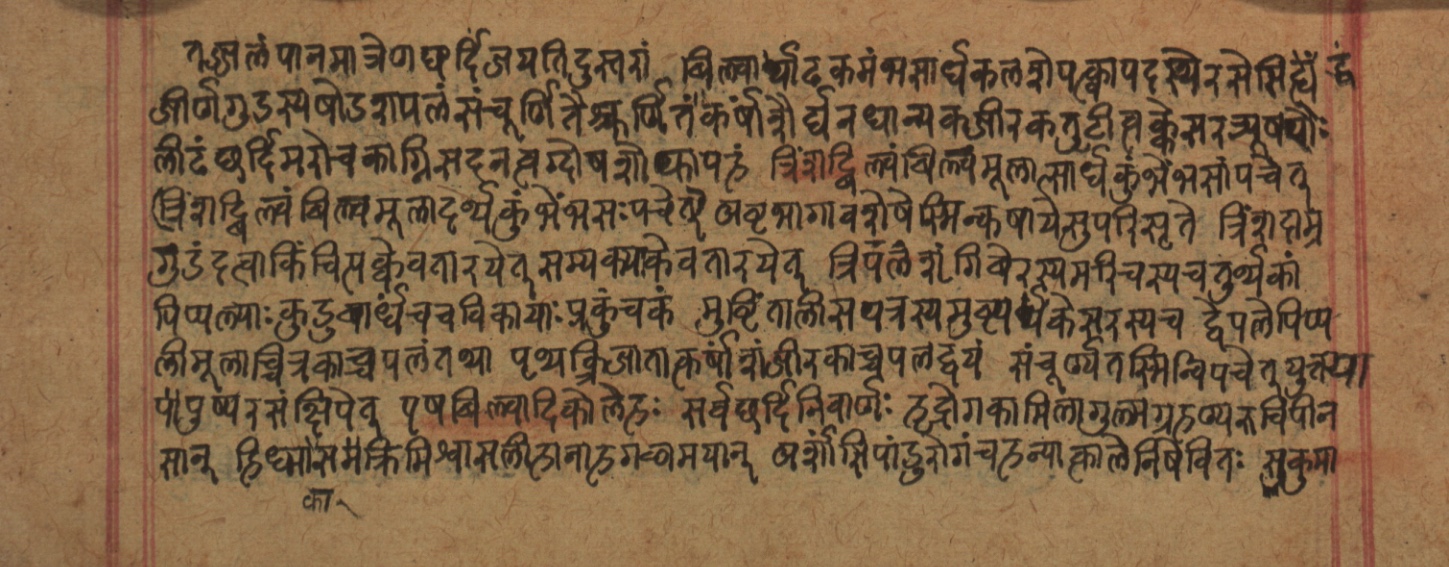 तज्जलं पानमात्रेण छर्दि जयति दुस्तरां बिल्वार्धाढकमंभसार्धकलशे पक्त्वा पदस्थे रसे सिद्धे
जीर्णगुडस्य षोडशपलं संचूर्णिते श्चूर्णितं कर्षांशैर्घनधान्यकजीरकतुटीत्वक्केसरत्र्यूषणैः
लीढं छर्दिमरोचकाग्निसदनत्वग्दोषशोफापहं त्रिंशद्बिल्वं बिल्वमूलात्सार्धकुंभेंभसां पचेत्
त्रिंशद्बिल्वं बिल्वमूलादर्थ्यकुंभेंभसः पचेत् अष्टभागावशेषे स्मिन्कषाये सुपरिसृते त्रिंशदाम्र
गुडं दत्वा किंचित्पक्वेवतारयेत् सम्यक्पाकेवतारयेत् त्रिपलं शृंगिबेरस्य मरिचस्य चतुर्थकां
पिप्पल्याः कुडुबार्धं च चविकायाः प्रकुंचकं मुष्टिं तालीसपत्रस्य मुष्ट्यर्धं केसरस्य च द्वे पले पिप्प
लीमूलाच्चित्रकाच्च पलं तथा पृथक्त्रिजातात्कर्षांशं जीरकाच्च पलद्वयं संचूर्ण्य तस्मिन्विपचेत्
पुष्परसं क्षिपेत् एष बिल्वादिको लेहः सर्वछर्दिनिवार्णः हृद्रोगकामिलागुल्मग्रहण्यरुचिपीन
सान् हिध्मांसमक्रिमिश्वासलीहानाहगदामयान् अर्शांसि पांडुरोगं च हन्यात्काले निषेवितः सुकुमा
का